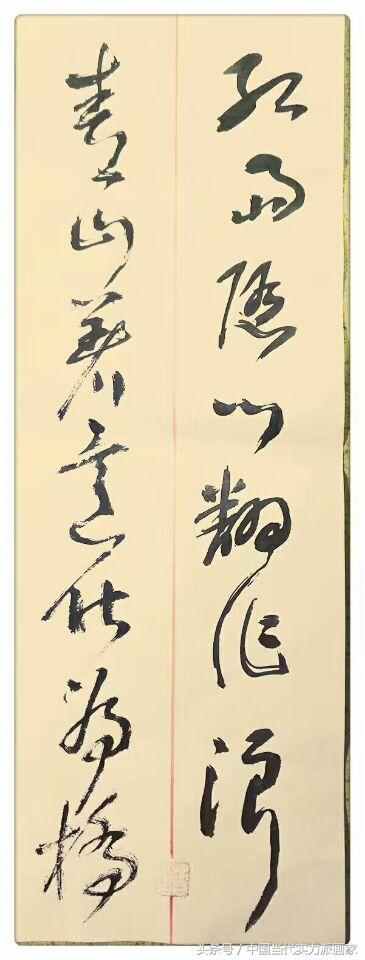 紅雨隨心翻作浪
青山着意化為橋
头条号 / 中国当代实力派画家